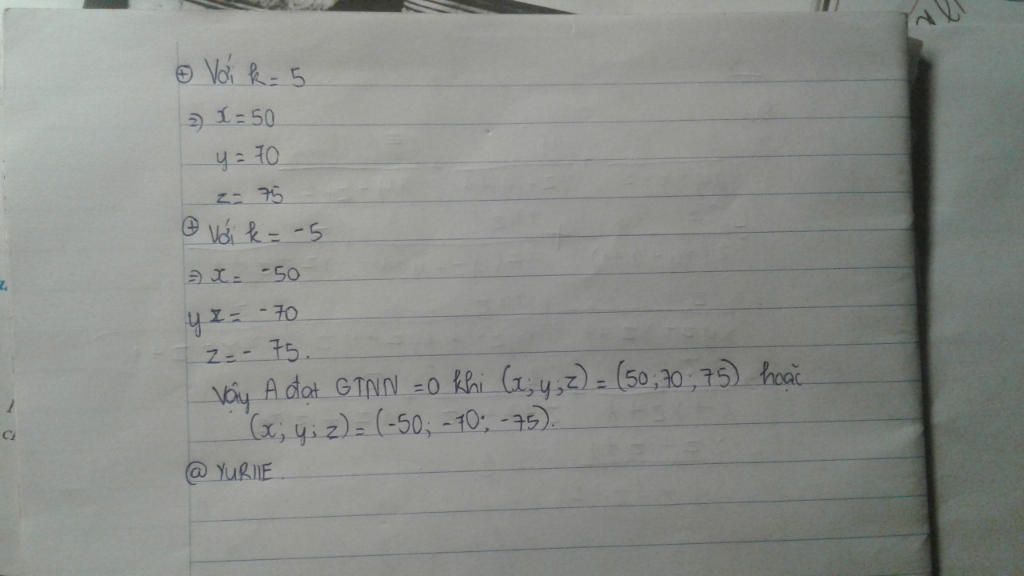 ⊕ Với k = 5
⇒ x = 50
y = 70
z = 75
⊕ Với k = -5
⇒ x = -50
y = -70
z = - 75.
Vậy A đạt GTNN = 0 khi (x; y; z) = (50; 70; 75) hoặc
(x; y; z) = (-50; -70; -75).
@ YURIIE.